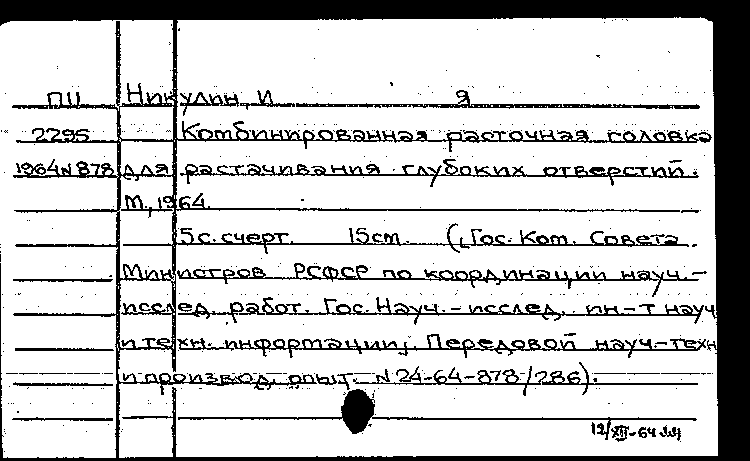 ПII Никулин, И Я
2295 Комбинированная расточная головка
1964 N 878 для растачивания глубоких отверстий.
М., 1964.
5 с. с черт. 15 см. ([Гос. Ком. Совета
Министров РСФСР по координации науч.-
исслед. работ. Гос. Науч.-исслед. ин-т науч
и техн. информации]. Передовой науч-техн
и производ. опыт. N 24-64-878/286).
12/XII-64